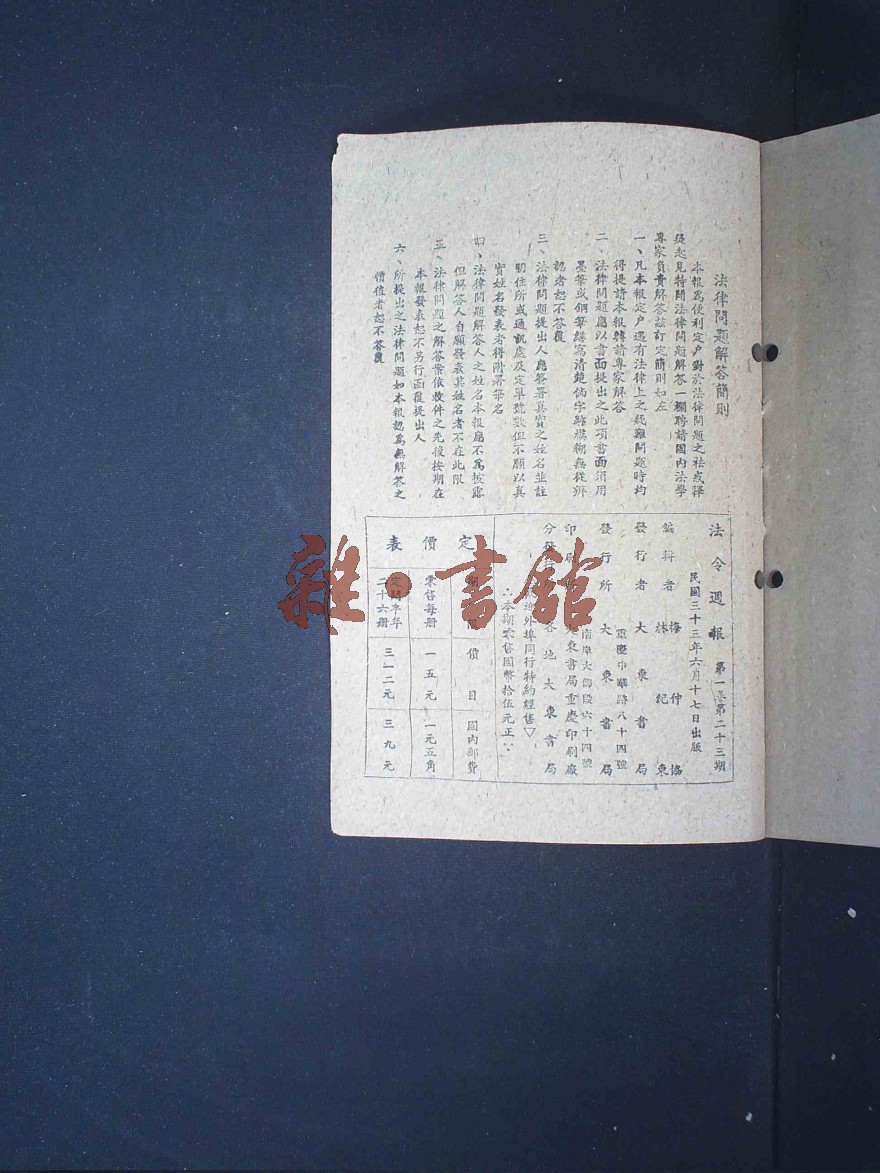 法律問題解答簡則
本報爲便利定户對於法律問題之祛或釋
疑起見特闢法律問題解答一欄聘請國内法學
專家負責解答茲訂定簡則如左
一、凡本報定户遇有法律上之疑難問題時均
得提請本報轉請專家解答
二、法律問題應以書面提出之此項書面須用
墨筆或鋼筆繕寫清楚倘字跡模糊無從辨
認者恕不答覆
三、法律問題提出人應簽署真實之姓名並註
明住所或通訊處及定單號數但不願以真
實姓名發表者得附署筆名
四、法律問題解答人之姓名本報應不爲披露
但解答人自願發表其姓名者不在此限
五、法律問題之解答案依收件之先後按期在
本報發表恕不另行函覆提出人
六、所提出之法律問題如本報認爲無解答之
價值者恕不答覆
法令週報 第一卷第二十三期
民國三十三年六月十七日出版
編輯者 梅仲協
林紀東
發行者 大東書局
重慶中華路八十四號
發行所 大東書局
南岸大佛段六十四號
印刷 大東書局重慶印刷廠
分發行 各地大東書局
外埠同行特約經售▽
∴本期零售國幣拾伍元正∵
定價表
期 價目 國内郵費
零售每册 一五元 一元五角
定閱半年二十六册 三一二元 三九元
雜·書館